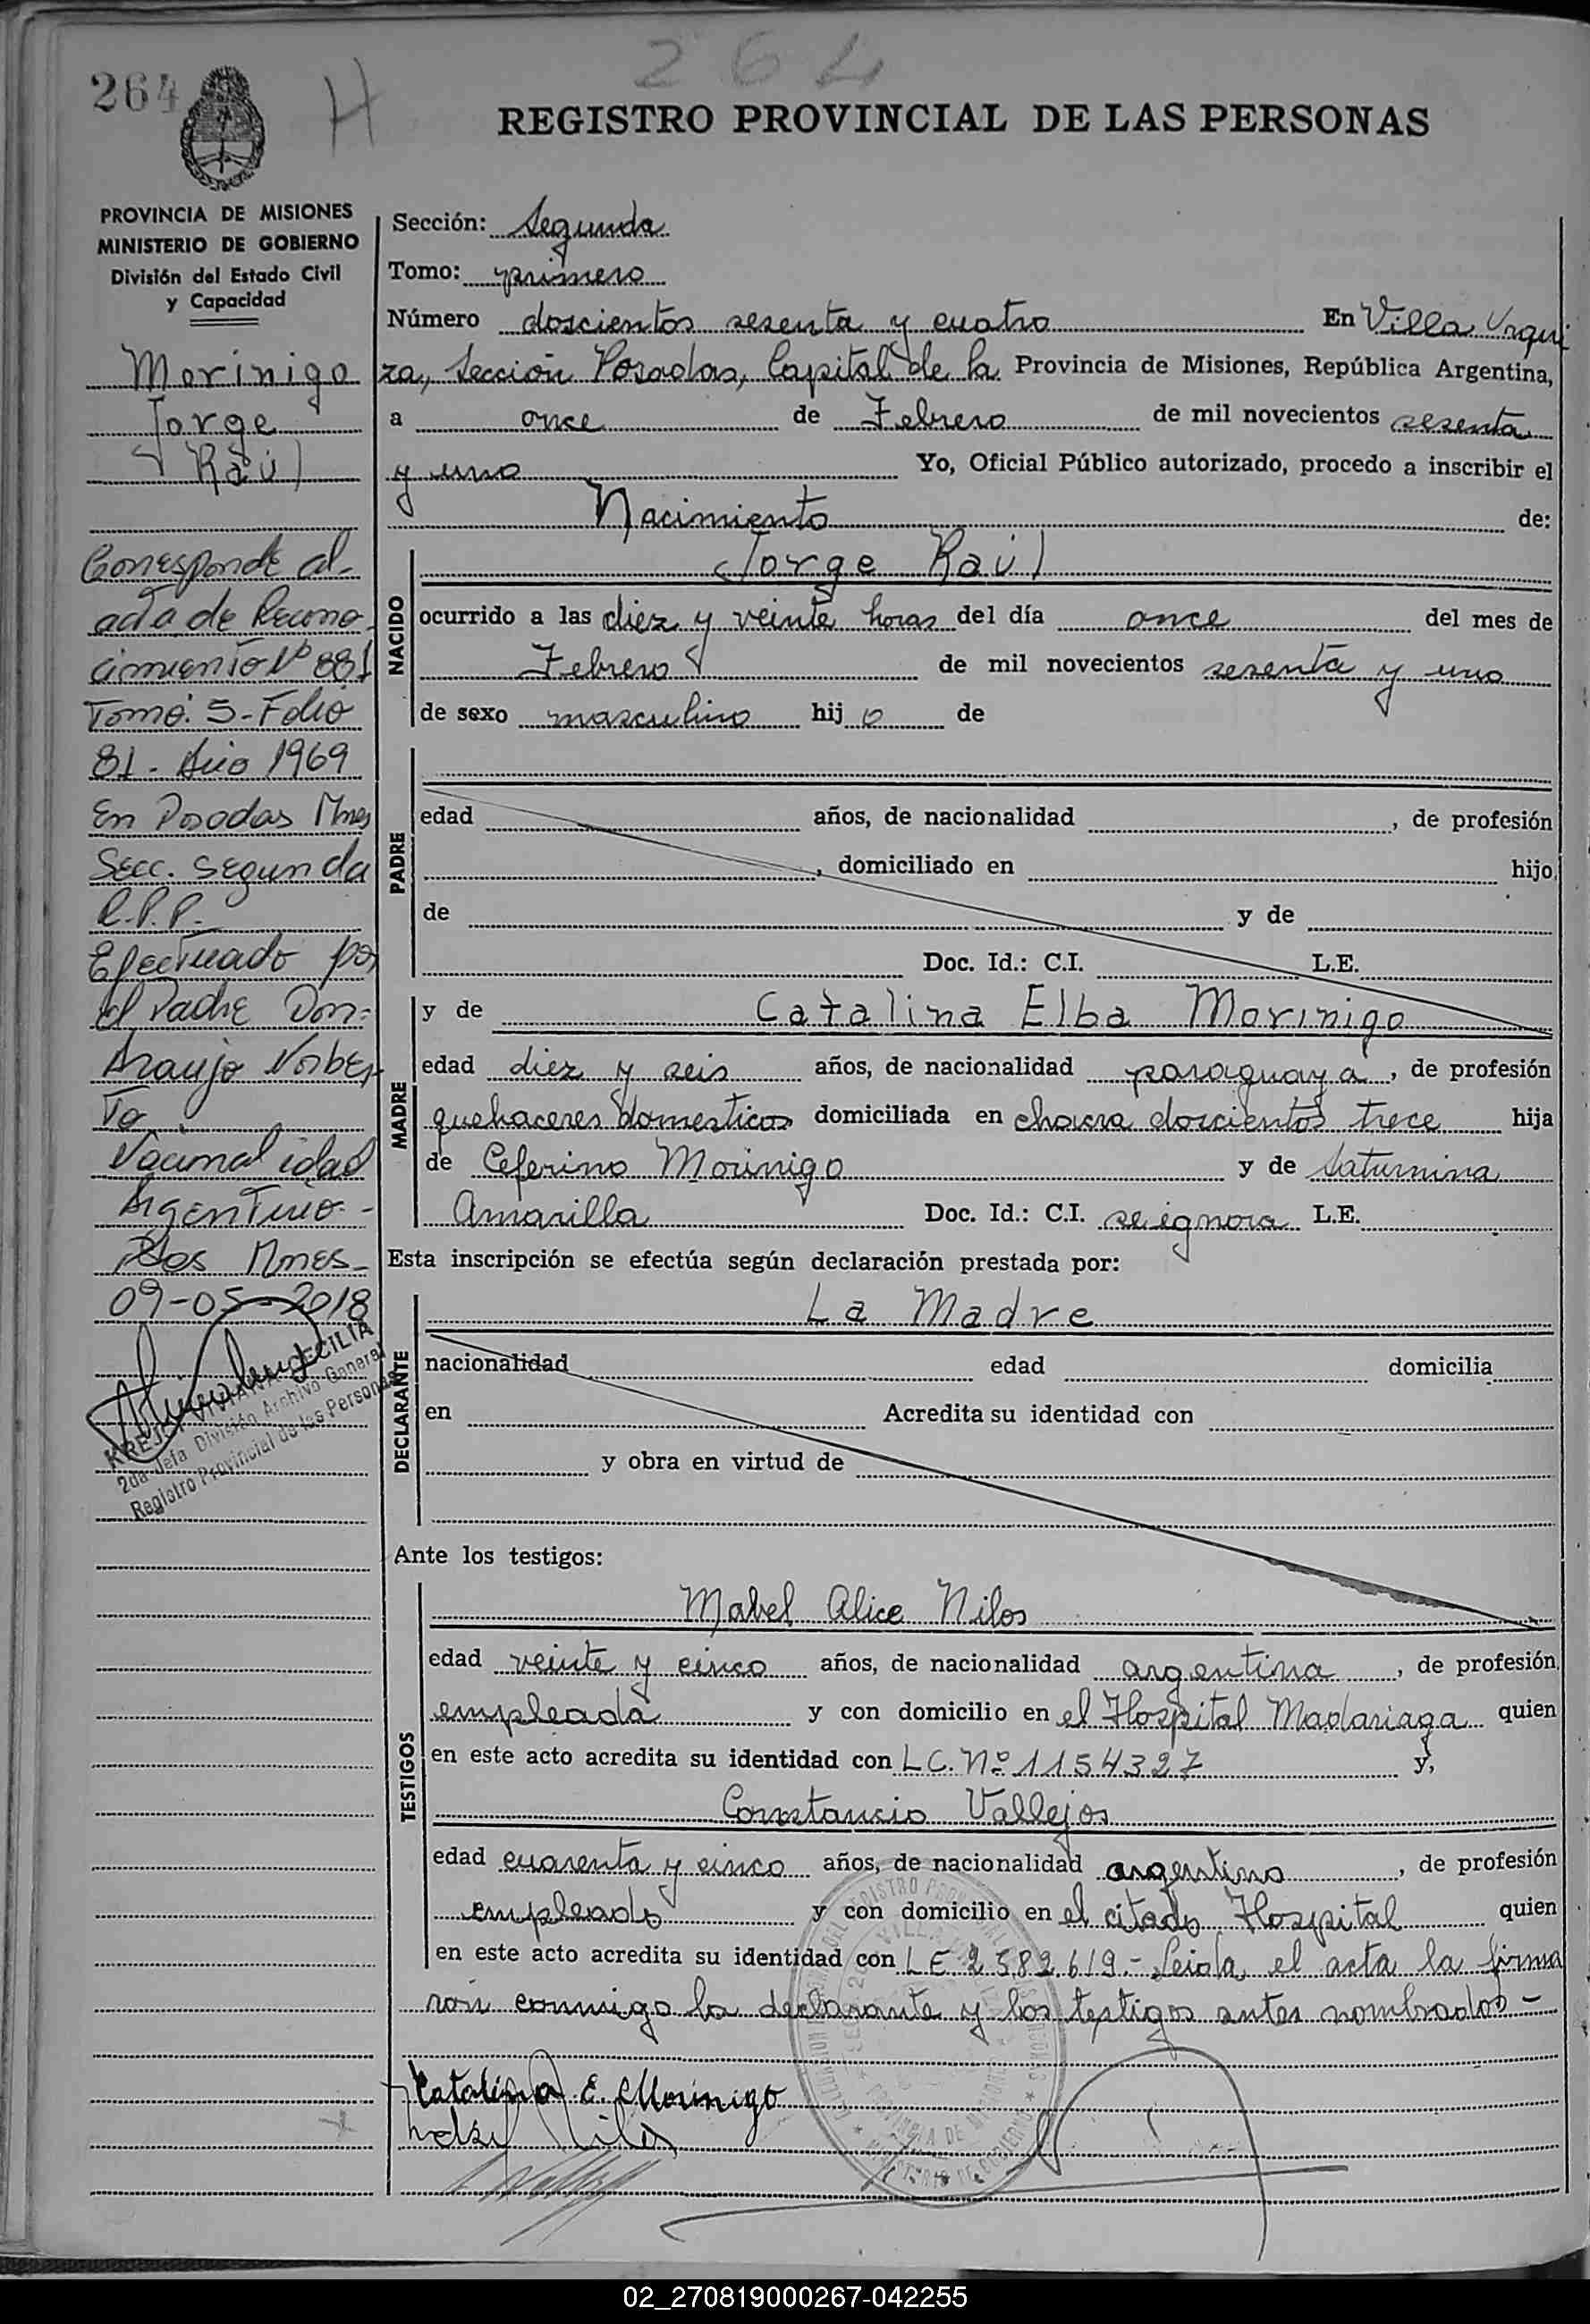 264
H
264
REGISTRO PROVINCIAL DE LAS PERSONAS
PROVINCIA DE MISIONES
MINISTERIO DE GOBIERNO
División del Estado Civil
y Capacidad
Morinigo
Jorge
Raúl
Corresponde al
acta de Recono
cimiento Nº 881
Tomo: 5 - Folio
81 - Año 1969
En Posadas Mnes
Secc. Segunda
R.P.P.
Efectuado por
el Padre Don:
Araujo Norber
to
Nacionalidad
Argentino.-
Pdas Mnes-
09-05-2018
KREJCI VIVIANA CECILIA
2da Jefa División Archivo General
Registro Provincial de las Personas
Sección: Segunda
Tomo: primero
Número doscientos sesenta y cuatro En Villa Urqui
za, Sección Posadas, Capital de la Provincia de Misiones, República Argentina,
a once de Febrero de mil novecientos sesenta
y uno Yo, Oficial Público autorizado, procedo a inscribir el
Nacimiento de:
NACIDO
Jorge Raúl
ocurrido a las diez y veinte horas del día once del mes de
Febrero de mil novecientos sesenta y uno
de sexo masculino hij o de
PADRE
edad años, de nacionalidad , de profesión
, domiciliado en hijo
de y de
Doc. Id.: C.I. L.E.
MADRE
y de Catalina Elba Morinigo
edad diez y seis años, de nacionalidad paraguaya, de profesión
quehaceres domesticos domiciliada en chacra doscientos trece hija
de Ceferino Morinigo y de Saturnina
Amarilla Doc. Id.: C.I. se ignora L.E.
Esta inscripción se efectúa según declaración prestada por:
DECLARANTE
La Madre
nacionalidad edad domicilia
en Acredita su identidad con
y obra en virtud de
Ante los testigos:
TESTIGOS
Mabel Alice Nilos
edad veinte y cinco años, de nacionalidad argentina, de profesión
empleada y con domicilio en el Hospital Madariaga quien
en este acto acredita su identidad con L.C. Nº 1154327 y,
Constancio Vallejos
edad cuarenta y cinco años, de nacionalidad argentino, de profesión
empleado y con domicilio en el citado Hospital quien
en este acto acredita su identidad con L E 2582619.- Leida el acta la firma
ron conmigo la declarante y los testigos antes nombrados-
Catalina E. Morinigo
02_270819000267-042255